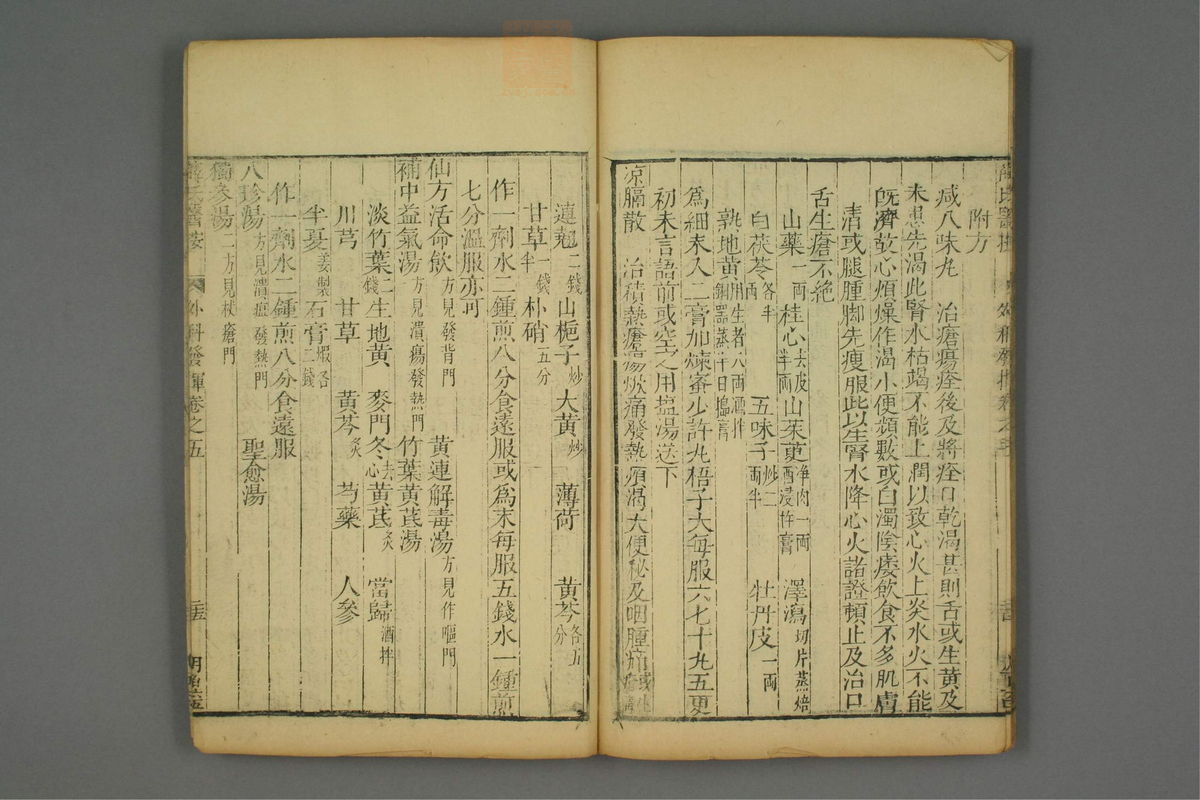 附方
減八味丸 治瘡瘍痊後及將痊口乾渴甚則舌或生黃及
未患先渴此腎水枯竭不能上潤以致心火上炎水火不能
既濟故心煩燥作渴小便頻數或白濁陰痿飲食不多肌膚
漸或腿腫脚先瘦服此以生腎水降心火諸證頓止及治口
舌生瘡不絶
山藥一兩 桂心去皮半兩 山茱萸淨肉一兩酒浸杵膏 澤瀉切片蒸焙
白茯苓各半兩 五味子炒二兩半 牡丹皮一兩
熟地黃用生者八兩酒拌銅器蒸半日搗膏
爲細末入二膏加煉蜜少許丸梧子大每服六七十丸五更
初未言語前或空心用塩湯送下
凉膈散 治積熱瘡瘍焮痛發熱煩渴大便秘及咽腫痛
連翹二錢 山梔子炒 大黃炒 薄荷 黃芩各五分
甘草一錢半 朴硝五分
作一劑水二鍾煎八分食遠服或爲末每服五錢水一鍾煎
七分溫服亦可
仙方活命飲方見發背門 黃連解毒湯方見作嘔門
補中益氣湯方見潰瘍發熱門 竹葉黃芪湯
淡竹葉二錢 生地黃 麥門冬去心 黃芪炙 當歸酒拌
川芎 甘草 黃芩炙 芍藥 人參
半夏姜製 石膏煅各二錢
作一劑水二鍾煎八分食遠服
八珍湯方見潰瘍發熱門 聖愈湯
獨參湯二方見杖瘡門
薛氏醫按 外科發揮卷之五 二十五